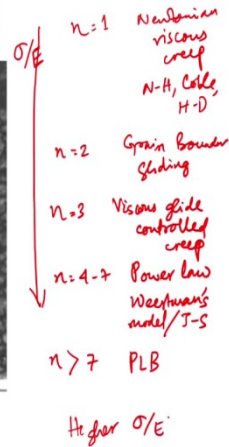 σ/E
n=1 Newtonian
viscous
creep
N-H, Coble,
H-D
n=2 Grain Boundary
sliding
n=3 Viscous glide
controlled
creep
n=4-7 Power law
Weertman's
model/J-S
n>7 PLB
Higher σ/E